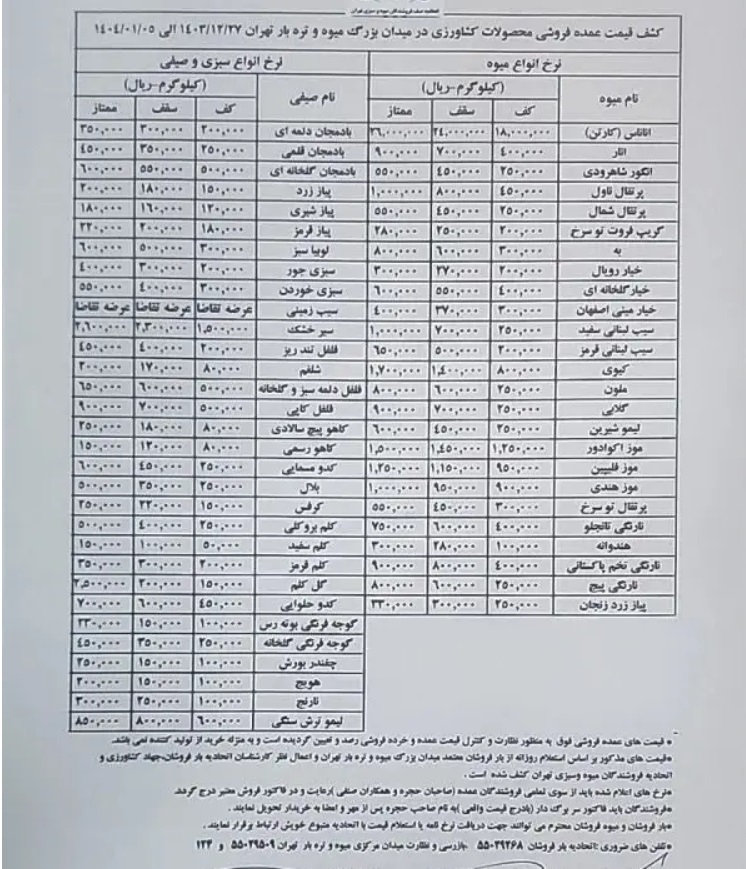 کشف قیمت عمده فروشی محصولات کشاورزی در میدان بزرگ میوه و تره بار تهران ۱۴۰۳/۱۲/۲۷ الی ۱۴۰۴/۰۱/۰۵
نرخ انواع میوه نرخ انواع سبزی و صیفی
نام میوه (کیلوگرم-ریال) نام صیفی (کیلوگرم-ریال)
کف سقف ممتاز کف سقف ممتاز
اناناس (کارتن) ۱۸,۰۰۰,۰۰۰ ۲۴,۰۰۰,۰۰۰ ۲۶,۰۰۰,۰۰۰ بادمجان دلمه ای ۲۰۰,۰۰۰ ۳۰۰,۰۰۰ ۳۵۰,۰۰۰
انار ۴۰۰,۰۰۰ ۷۰۰,۰۰۰ ۹۰۰,۰۰۰ بادمجان قلمی ۲۵۰,۰۰۰ ۳۵۰,۰۰۰ ۴۵۰,۰۰۰
انگور شاهرودی ۲۵۰,۰۰۰ ۴۵۰,۰۰۰ ۵۵۰,۰۰۰ بادمجان گلخانه ای ۵۰۰,۰۰۰ ۵۵۰,۰۰۰ ۶۰۰,۰۰۰
پرتقال ناول ۴۵۰,۰۰۰ ۸۰۰,۰۰۰ ۱,۰۰۰,۰۰۰ پیاز زرد ۱۵۰,۰۰۰ ۱۸۰,۰۰۰ ۲۰۰,۰۰۰
پرتقال شمال ۲۵۰,۰۰۰ ۴۵۰,۰۰۰ ۵۵۰,۰۰۰ پیاز شیری ۱۲۰,۰۰۰ ۱۶۰,۰۰۰ ۱۸۰,۰۰۰
گریپ فروت تو سرخ ۲۰۰,۰۰۰ ۲۵۰,۰۰۰ ۲۸۰,۰۰۰ پیاز قرمز ۱۸۰,۰۰۰ ۲۰۰,۰۰۰ ۲۲۰,۰۰۰
به ۳۰۰,۰۰۰ ۶۰۰,۰۰۰ ۸۰۰,۰۰۰ لوبیا سبز ۳۰۰,۰۰۰ ۵۰۰,۰۰۰ ۶۰۰,۰۰۰
خیار رویال ۲۰۰,۰۰۰ ۲۷۰,۰۰۰ ۳۰۰,۰۰۰ سبزی جور ۲۰۰,۰۰۰ ۳۰۰,۰۰۰ ۴۰۰,۰۰۰
خیار گلخانه ای ۴۰۰,۰۰۰ ۵۵۰,۰۰۰ ۶۰۰,۰۰۰ سبزی خوردن ۳۰۰,۰۰۰ ۴۰۰,۰۰۰ ۵۵۰,۰۰۰
خیار مینی اصفهان ۳۰۰,۰۰۰ ۳۷۰,۰۰۰ ۴۰۰,۰۰۰ سیب زمینی عرضه تقاضا عرضه تقاضا عرضه تقاضا
سیب لبنانی سفید ۲۵۰,۰۰۰ ۷۰۰,۰۰۰ ۱,۰۰۰,۰۰۰ سیر خشک ۱,۵۰۰,۰۰۰ ۲,۳۰۰,۰۰۰ ۲,۶۰۰,۰۰۰
سیب لبنانی قرمز ۲۰۰,۰۰۰ ۵۰۰,۰۰۰ ۶۵۰,۰۰۰ فلفل تند ریز ۲۰۰,۰۰۰ ۴۰۰,۰۰۰ ۴۵۰,۰۰۰
کیوی ۸۰۰,۰۰۰ ۱,۴۰۰,۰۰۰ ۱,۷۰۰,۰۰۰ شلغم ۸۰,۰۰۰ ۱۷۰,۰۰۰ ۲۰۰,۰۰۰
ملون ۲۵۰,۰۰۰ ۶۰۰,۰۰۰ ۸۰۰,۰۰۰ فلفل دلمه سبز و گلخانه ۵۰۰,۰۰۰ ۶۰۰,۰۰۰ ۶۵۰,۰۰۰
گلابی ۲۵۰,۰۰۰ ۷۰۰,۰۰۰ ۹۰۰,۰۰۰ فلفل کاپی ۵۰۰,۰۰۰ ۷۰۰,۰۰۰ ۹۰۰,۰۰۰
لیمو شیرین ۲۵۰,۰۰۰ ۴۵۰,۰۰۰ ۶۰۰,۰۰۰ کاهو پیچ سالادی ۸۰,۰۰۰ ۱۸۰,۰۰۰ ۲۵۰,۰۰۰
موز اکوادور ۱,۲۵۰,۰۰۰ ۱,۴۵۰,۰۰۰ ۱,۵۰۰,۰۰۰ کاهو رسمی ۸۰,۰۰۰ ۱۲۰,۰۰۰ ۱۵۰,۰۰۰
موز فلیپین ۹۵۰,۰۰۰ ۱,۱۵۰,۰۰۰ ۱,۲۵۰,۰۰۰ کدو مسمایی ۲۵۰,۰۰۰ ۴۵۰,۰۰۰ ۶۰۰,۰۰۰
موز هندی ۹۰۰,۰۰۰ ۹۵۰,۰۰۰ ۱,۰۰۰,۰۰۰ بلال ۲۵۰,۰۰۰ ۳۵۰,۰۰۰ ۵۰۰,۰۰۰
پرتقال تو سرخ ۳۰۰,۰۰۰ ۴۵۰,۰۰۰ ۵۵۰,۰۰۰ کرفس ۱۵۰,۰۰۰ ۲۲۰,۰۰۰ ۲۵۰,۰۰۰
نارنگی تانجلو ۴۰۰,۰۰۰ ۶۰۰,۰۰۰ ۷۵۰,۰۰۰ کلم بروکلی ۲۵۰,۰۰۰ ۴۰۰,۰۰۰ ۵۰۰,۰۰۰
هندوانه ۱۰۰,۰۰۰ ۲۸۰,۰۰۰ ۳۰۰,۰۰۰ کلم سفید ۵۰,۰۰۰ ۱۰۰,۰۰۰ ۱۵۰,۰۰۰
نارنگی تخم پاکستانی ۴۰۰,۰۰۰ ۸۰۰,۰۰۰ ۹۰۰,۰۰۰ کلم قرمز ۲۰۰,۰۰۰ ۳۰۰,۰۰۰ ۳۵۰,۰۰۰
نارنگی پیج ۲۵۰,۰۰۰ ۶۰۰,۰۰۰ ۸۰۰,۰۰۰ گل کلم ۱۵۰,۰۰۰ ۲۰۰,۰۰۰ ۲,۵۰۰,۰۰۰
پیاز زرد زنجان ۲۵۰,۰۰۰ ۳۰۰,۰۰۰ ۳۳۰,۰۰۰ کدو حلوایی ۴۵۰,۰۰۰ ۶۰۰,۰۰۰ ۷۰۰,۰۰۰
گوجه فرنگی بوته رس ۱۰۰,۰۰۰ ۱۵۰,۰۰۰ ۲۳۰,۰۰۰
گوجه فرنگی گلخانه ۲۵۰,۰۰۰ ۳۵۰,۰۰۰ ۴۵۰,۰۰۰
چغندر بورش ۱۰۰,۰۰۰ ۱۵۰,۰۰۰ ۲۵۰,۰۰۰
هویج ۱۰۰,۰۰۰ ۱۵۰,۰۰۰ ۲۰۰,۰۰۰
نارنج ۱۰۰,۰۰۰ ۲۵۰,۰۰۰ ۳۰۰,۰۰۰
لیمو ترش سنگی ۶۰۰,۰۰۰ ۸۰۰,۰۰۰ ۸۵۰,۰۰۰
* قیمت های عمده فروشی فوق به منظور نظارت و کنترل قیمت عمده و خرده فروشی رصد و تعیین گردیده است و به منزله خرید از تولید کننده نمی باشد.
*قیمت های مذکور بر اساس استعلام روزانه از بار فروشان معتمد میدان بزرگ میوه و تره بار تهران و اعمال نظر کارشناسان اتحادیه بار فروشان،جهاد کشاورزی و
اتحادیه فروشندگان میوه وسبزی تهران کشف شده است .
*نرخ های اعلام شده باید از سوی تمامی فروشندگان عمده (صاحبان حجره و همکاران صنفی )رعایت و در فاکتور فروش معتبر درج گردد.
*فروشندگان باید فاکتور سر برگ دار (بادرج قیمت واقعی )به نام صاحب حجره پس از مهر و امضا به خریدار تحویل نمایند .
*بار فروشان و میوه فروشان محترم می توانند جهت دریافت نرخ نامه یا استعلام قیمت با اتحادیه متبوع خویش ارتباط برقرار نمایند .
*تلفن های ضروری :اتحادیه بار فروشان ۵۵۰۲۹۲۶۸ ،بازرسی و نظارت میدان مرکزی میوه و تره بار تهران ۵۵۰۲۹۵۰۹ و ۱۲۴